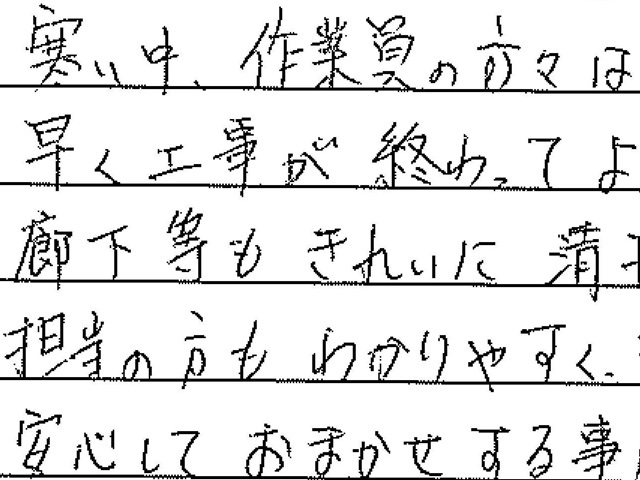 寒い中、作業員の方々は
早く工事が終わってよ
廊下等もきれいに清
担当の方もわかりやすく、
安心しておまかせする事